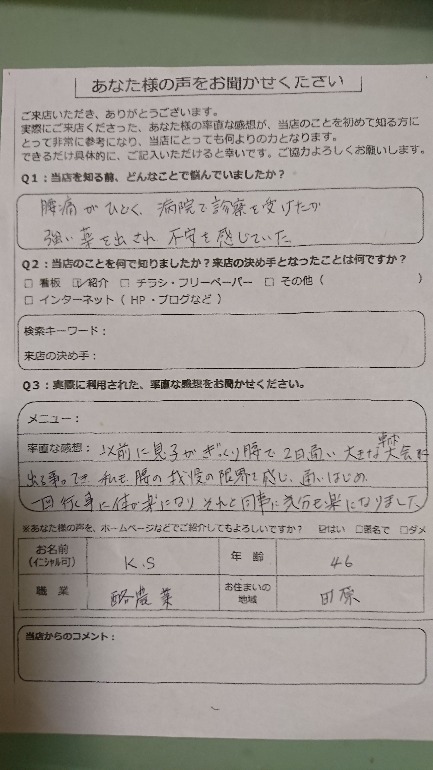 あなた様の声をお聞かせください
ご来店いただき、ありがとうございます。
実際にご来店くださった、あなた様の率直な感想が、当店のことを初めて知る方に
とって非常に参考になり、当店にとっても何よりの力となります。
できるだけ具体的に、ご記入いただけると幸いです。ご協力よろしくお願いします。
Q1：当店を知る前、どんなことで悩んでいましたか？
腰痛がひどく、病院で診察を受けたが
強い薬を出され 不安を感じていた
Q2：当店のことを何で知りましたか？来店の決め手となったことは何ですか？
□ 看板 ☑紹介 □ チラシ・フリーペーパー □ その他（ ）
□ インターネット（ HP・ブログなど ）
検索キーワード：
来店の決め手：
Q3：実際に利用された、率直な感想をお聞かせください。
メニュー：
率直な感想：以前に息子がぎっくり腰で 2日通い 大きな 大会に
出る事ができ 私も 腰の我慢の限界を感じ、通いはじめ
一回行く事に体が楽になり それと同事に気分も楽になりました
※あなた様の声を、ホームページなどでご紹介してもよろしいですか？ ☑はい □匿名で □ダメ
お名前
（イニシャル可） K.S 年 齢 46
職 業 酪農業 お住まいの
地域 田原
当店からのコメント：